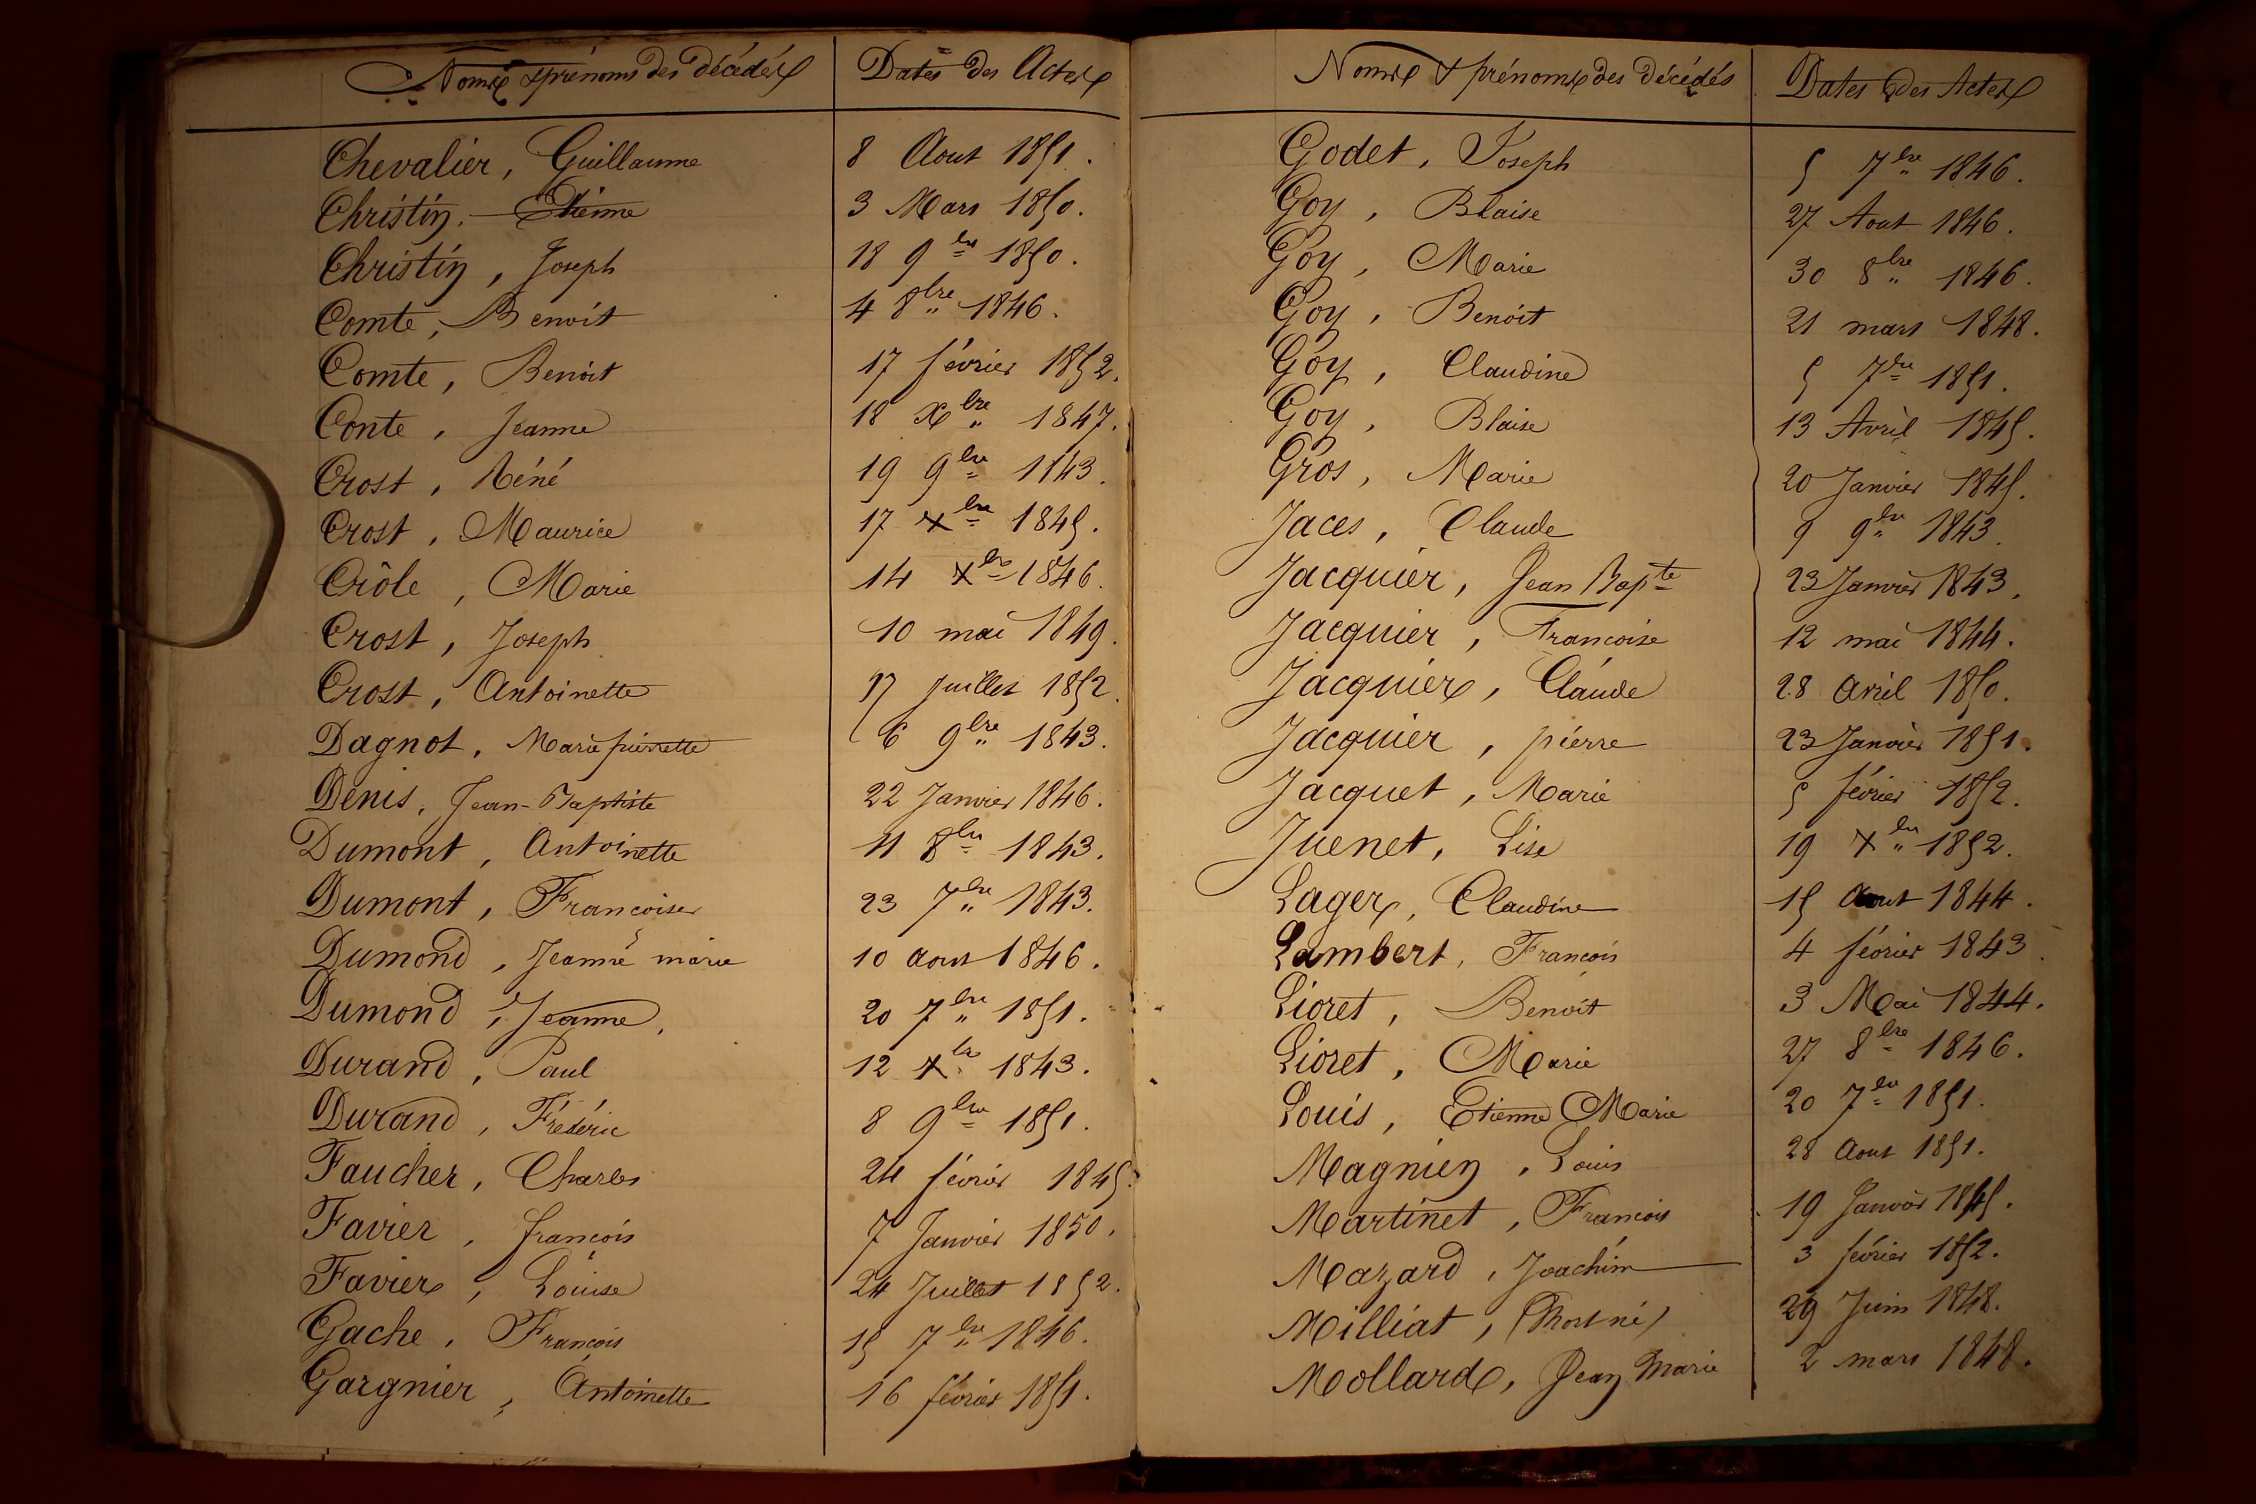 Noms & prénoms des décédés Dates des Actes
Chevalier, Guillaume 8 Aout 1851.
Christin, Etienne 3 Mars 1850.
Christin, Joseph 18 9bre 1850.
Comte, Benoit 4 8bre 1846.
Comte, Benoit 17 février 1852.
Conte, Jeanne 18 Xbre 1847.
Crost, Réné 19 9bre 1143.
Crost, Maurice 17 Xbre 1845.
Crôle, Marie 14 Xbre 1846.
Crost, Joseph 10 mai 1849.
Crost, Antoinette 17 Juillet 1852.
Dagnot, Marie pierrette 6 9bre 1843.
Denis, Jean-Baptiste 22 Janvier 1846.
Dumont, Antoinette 11 8bre 1843.
Dumont, Francoise 23 7bre 1843.
Dumond, Jeanne marie 10 aout 1846.
Dumond, Jeanne, 20 7bre 1851.
Durand, Paul 12 Xbre 1843.
Durand, Fréderic 8 9bre 1851.
Faucher, Charles 24 février 1845.
Favier, francois 7 Janvier 1850.
Favier, Louise 24 Juillet 1852.
Gache, Francois 15 7bre 1846.
Gargnier, Antoinette 16 février 1851.
Noms & prénoms des décédés Dates des Actes
Godet, Joseph 5 7bre 1846.
Goy, Blaise 27 Aout 1846.
Goy, Marie 30 8bre 1846.
Goy, Benoit 21 mars 1848.
Goy, Claudine 5 7bre 1851.
Goy, Blaise 13 Avril 1845.
Gros, Marie 20 Janvier 1845.
Jaces, Claude 9 9bre 1843.
Jacquier, Jean Bapte 23 Janvier 1843.
Jacquier, Francoise 12 mai 1844.
Jacquier, Claude 28 Avril 1850.
Jacquier, pierre 23 Janvier 1851.
Jacquet, Marie 5 février 1852.
Juenet, Lise 19 Xbre 1852.
Lager, Claudine 15 Aout 1844.
Lambert, Francois 4 février 1843.
Lioret, Benoit 3 Mai 1844.
Lioret, Marie 27 8bre 1846.
Louis, Etienne Marie 20 7bre 1851.
Magnien, Louis 28 Aout 1851.
Martinet, Francois 19 Janvier 1845.
Mazard, Joachim 3 février 1852.
Milliat, (Mort né) 29 Juin 1848.
Mollard, Jean Marie 2 mars 1848.